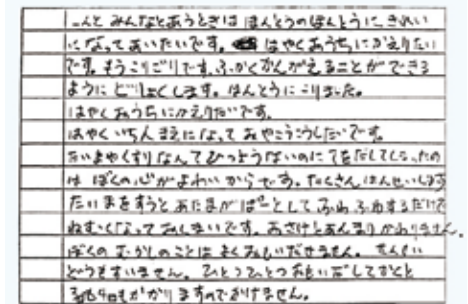 んと みんなとあうときは ほんとうのほんとうに、きれい
になってあいたいです。 はやくおうちにかえりたい
です。もうこりごりです。ふかくかんがえることができる
ように どりょくします。ほんとうにこりました。
はやくおうちにかえりたいです。
はやくいちんまえになって おやこうこうしたいです。
たいまやくすりなんてひつようないのにてをだしてしまったの
は ぼくの心がよわいからです。たくさんはんせいします
たいまをすうと あたまがぼーとして ふわふわするだけで
ねむくなっておしまいです。おさけとあんまりかわりません。
ぼくの むかしのことは よくおもいだせません。
どうもすいません。ひとつひとつおもいだしてかくと
365日もかかりますのでかけません。